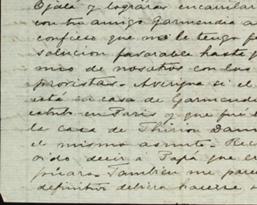 Ojalá y lograras encarrilar
con tu amigo Garmendia a
confieso que no le tengo f
solucion favorable hasta q
mos de nosotros con los
provistas. Averigua si el
está en casa de Garmendi
estuvo en Paris y que fué
la casa de Thirion Dam
el mismo asunto. Rec
oido decir a Papá que er
pirara. Tambien me parec
definitivo debiera hacerse